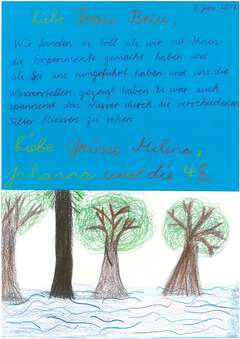 liebe Frau Breu,
Wir fanden es toll als wir mit Ihnen
die Experimente gemacht haben und
als Sie uns rumgeführt haben und uns die
gezeigt haben. Es war auch
spannend das Wasser durch die verschiedenen
Filter fliessen zu sehen.
liebe Grüsse Milena,
Johanna und die 4E